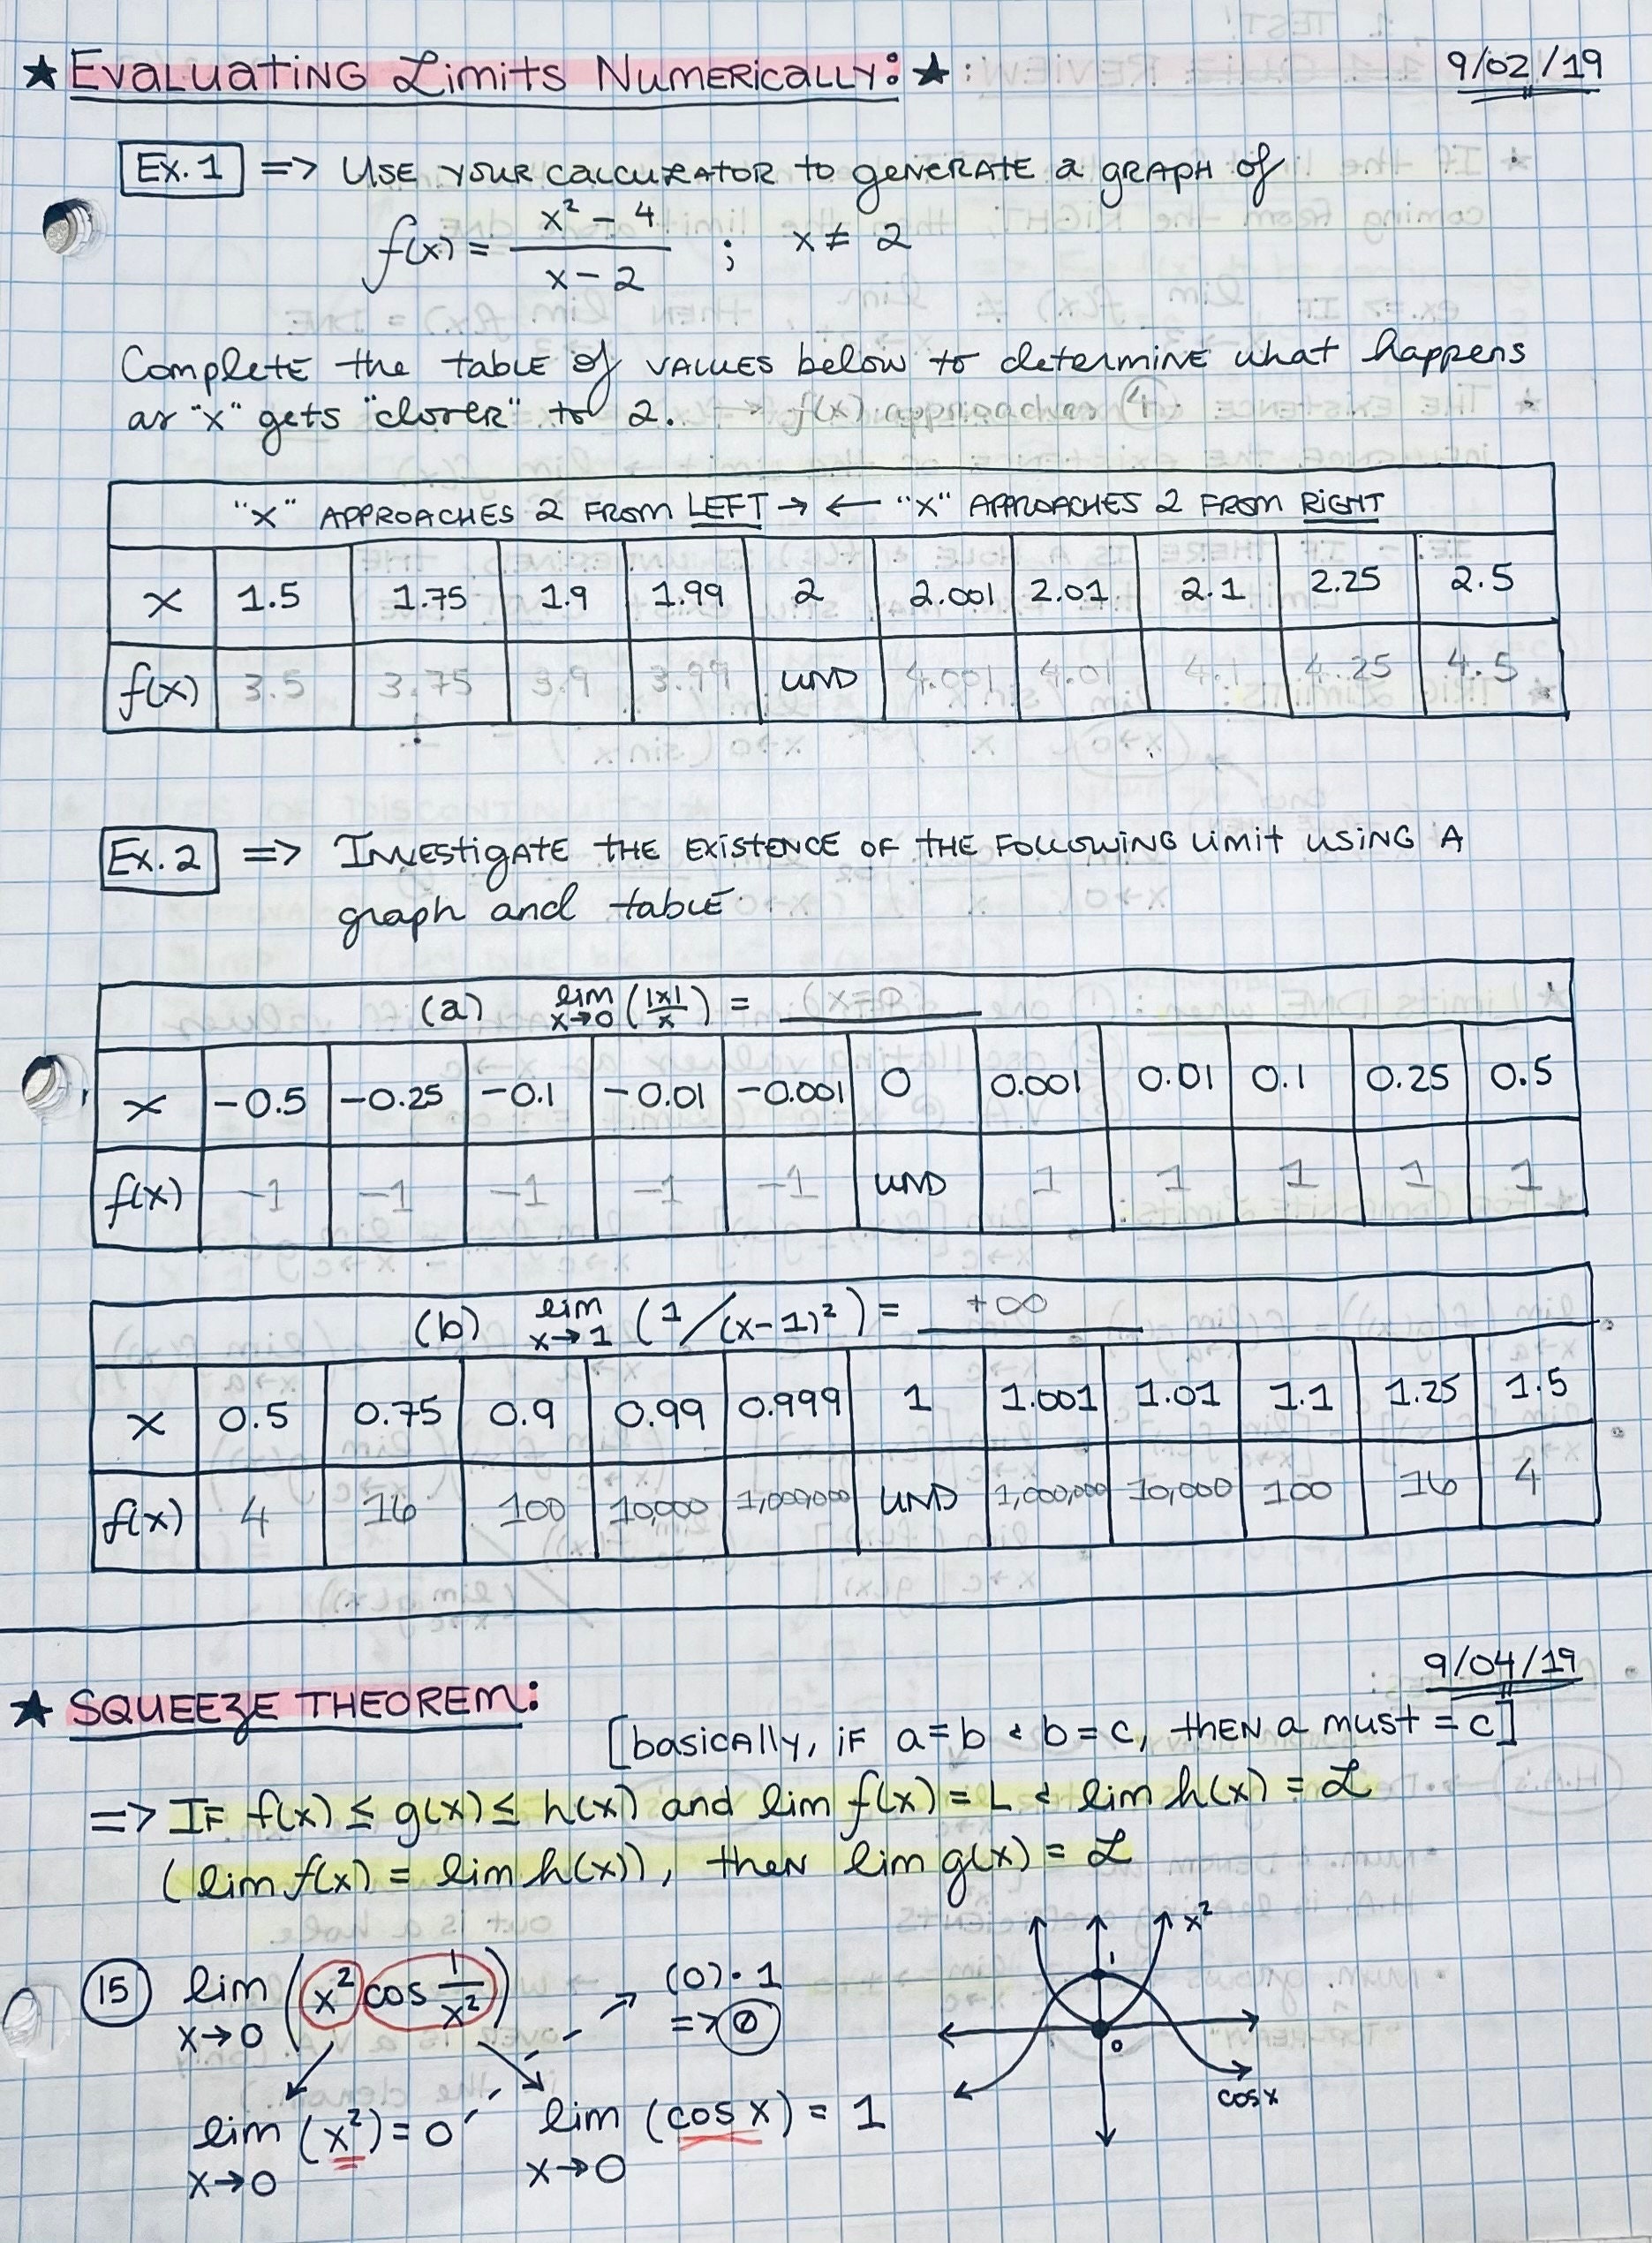 ★ Evaluating Limits Numerically: ★
9/02/19
Ex. 1 => Use your calculator to generate a graph of
f(x) = x² - 4 / x - 2 ; x ≠ 2
Complete the table of values below to determine what happens
as "x" gets "closer" to 2. f(x) approaches 4
"X" APPROACHES 2 FROM LEFT → ← "X" APPROACHES 2 FROM RIGHT
x 1.5 1.75 1.9 1.99 2 2.001 2.01 2.1 2.25 2.5
f(x) 3.5 3.75 3.9 3.99 UND 4.001 4.01 4.1 4.25 4.5
Ex. 2 => Investigate the existence of the following limit using a
graph and table
(a) lim x→0 (|x|/x) =
x -0.5 -0.25 -0.1 -0.01 -0.001 0 0.001 0.01 0.1 0.25 0.5
f(x) -1 -1 -1 -1 -1 UND 1 1 1 1 1
(b) lim x→1 (1/(x-1)²) = +∞
x 0.5 0.75 0.9 0.99 0.999 1 1.001 1.01 1.1 1.25 1.5
f(x) 4 16 100 10,000 1,000,000 UND 1,000,000 10,000 100 16 4
9/04/19
★ SQUEEZE THEOREM:
[basically, if a = b & b = c, then a must = c]
=> If f(x) ≤ g(x) ≤ h(x) and lim f(x) = L & lim h(x) = L
(lim f(x) = lim h(x)), then lim g(x) = L
15 lim x→0 (x² cos 1/x²)
(0)·1
=> 0
lim x→0 (x²) = 0
lim x→0 (cos x) = 1
x²
1
0
cos x